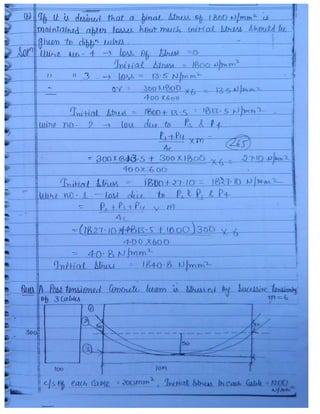 (b) If it is desired that a final stress of 1800 N/mm² is
maintained after losses how much initial stress should be
given to diffⁿ wires.
Solⁿ wire no - 4 → loss of stress = 0
Initial stress = 1800 N/mm²
" " 3 → loss = 13.5 N/mm²
or = 300×1800 / 400×600 × 6 = 13.5 N/mm²
Initial stress = 1800 + 13.5 = 1813.5 N/mm²
wire no. 2 → loss due to P3 & P4
P3+P4 / Ac × m (265)
= 300×1813.5 + 300×1800 / 400×600 × 6 = 27.10 N/mm²
Initial stress = 1800+27.10 = 1827.10 N/mm²
wire no. 1 - lost due to P2 P3 & P4
= P2 + P3 + P4 / Ac × m
= (1827.10+1813.5+1800)300 / 400×600 × 6
= 40.8 N/mm²
Initial stress = 1840.8 N/mm²
Ques A Post tensioned Concrete beam is stressed by successive tensioning
of 3 Cables m=6
① ② ③
300
50
100 10m
c/s of each cable = 200mm², Initial stress in each Cable = 1200
N/mm²